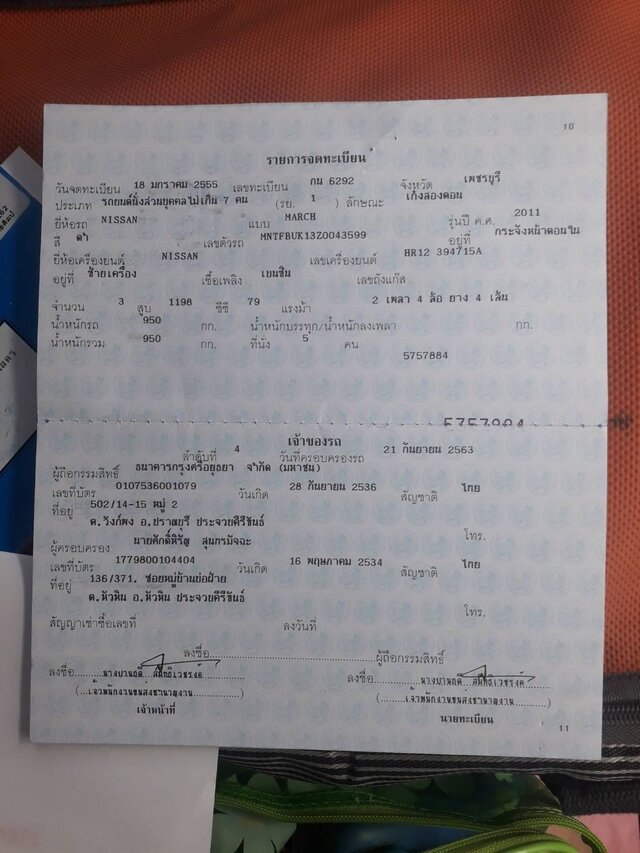 10
รายการจดทะเบียน
วันจดทะเบียน 18 มกราคม 2555 เลขทะเบียน กน 6292 จังหวัด เพชรบุรี
ประเภท รถยนต์นั่งส่วนบุคคลไม่เกิน 7 คน (รย. 1 ) ลักษณะ เก๋งสองตอน
ยี่ห้อรถ NISSAN แบบ MARCH รุ่นปี ค.ศ. 2011
สี ดำ เลขตัวรถ MNTFBUK13Z0043599 อยู่ที่ กระจังหน้าตอนใน
ยี่ห้อเครื่องยนต์ NISSAN เลขเครื่องยนต์ HR12 394715A
อยู่ที่ ซ้ายเครื่อง เชื้อเพลิง เบนซิน เลขถังแก๊ส
จำนวน 3 สูบ 1198 ซีซี 79 แรงม้า 2 เพลา 4 ล้อ ยาง 4 เส้น
น้ำหนักรถ 950 กก. น้ำหนักบรรทุก/น้ำหนักลงเพลา กก.
น้ำหนักรวม 950 กก. ที่นั่ง 5 คน
5757884
5757884
เจ้าของรถ
ลำดับที่ 4 วันที่ครอบครองรถ 21 กันยายน 2563
ผู้ถือกรรมสิทธิ์ ธนาคารกรุงศรีอยุธยา จำกัด (มหาชน)
เลขที่บัตร 0107536001079 วันเกิด 28 กันยายน 2536 สัญชาติ ไทย
ที่อยู่ 502/14-15 หมู่ 2
ต.วังก์พง อ.ปราณบุรี ประจวบคีรีขันธ์ โทร.
ผู้ครอบครอง นายศักดิ์หิรัญ สุนกรมัจฉะ
เลขที่บัตร 1779800104404 วันเกิด 16 พฤษภาคม 2534 สัญชาติ ไทย
ที่อยู่ 136/371. ซอยหมู่บ้านบ่อฝ้าย
ต.หัวหิน อ.หัวหิน ประจวบคีรีขันธ์ โทร.
สัญญาเช่าซื้อเลขที่ ลงวันที่
ลงชื่อ ผู้ถือกรรมสิทธิ์
ลงชื่อ ลงชื่อ
(เจ้าพนักงานขนส่งชำนาญงาน) (เจ้าพนักงานขนส่งชำนาญงาน)
เจ้าหน้าที่ นายทะเบียน
11